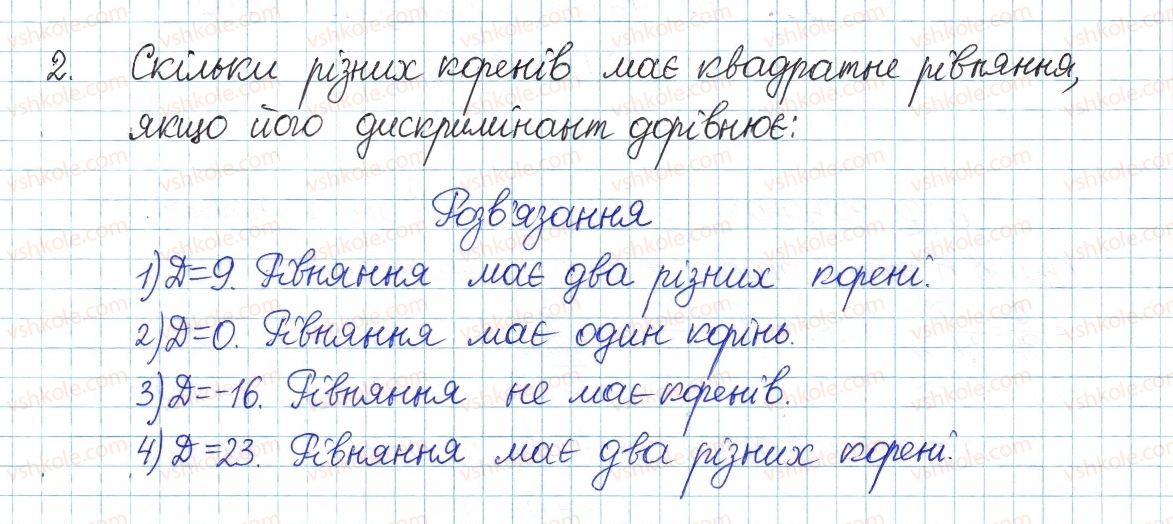 2. Скільки різних коренів має квадратне рівняння,
якщо його дискримінант дорівнює:
Розв'язання
1) Д=9. Рівняння має два різних корені.
2) Д=0. Рівняння має один корінь.
3) Д=-16. Рівняння не має коренів.
4) Д=23. Рівняння має два різних корені.
vshkole.com